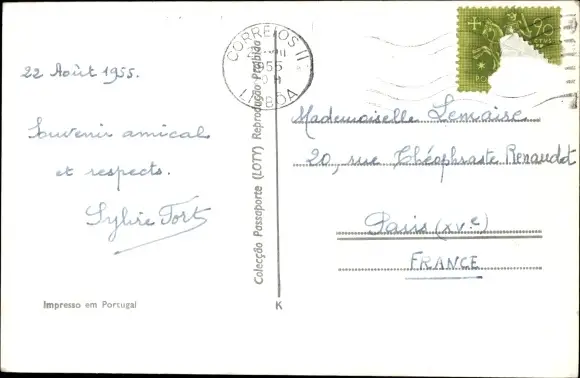 22 Août 1955.
Souvenir amical
et respects.
Sylvie Fort
Impresso em Portugal
Colecção Passaporte (LOTY) Reprodução Proibida
K
CORREIOS II
1955
LISBOA
90
CTVS
Mademoiselle Lemaise
20, rue Théophraste Renaudot
Paris (XVe)
FRANCE